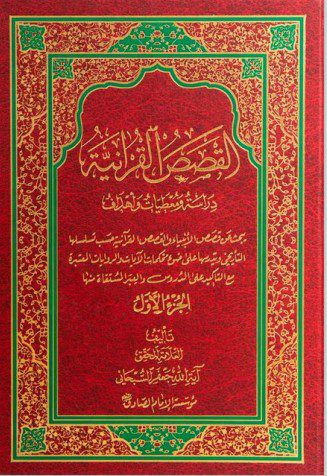 القصص القرآنية
دراسة ومعطيات وأهداف
يبحث عن قصص الأنبياء والقصص القرآنية حسب تسلسلها
التاريخي ويدرسها على ضوء محكمات الآيات والروايات المعتبرة
مع التأكيد على الدروس والعبر المستقاة منها
الجزء الأول
تأليف
العلامة المحقق
آية الله جعفر السبحاني
مؤسسة الإمام الصادق